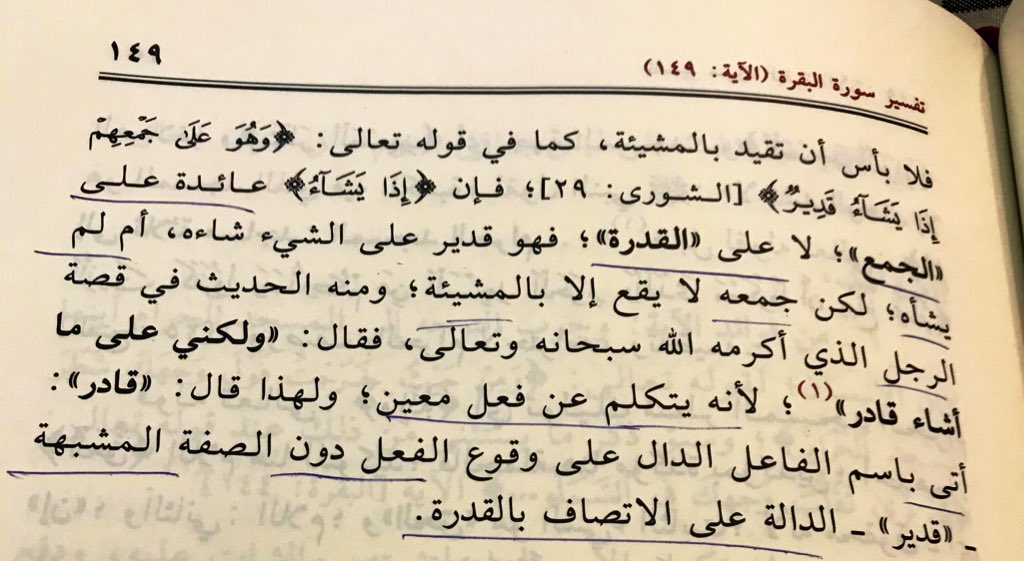 تفسير سورة البقرة (الآية: ١٤٩) ١٤٩
فلا بأس أن تقيد بالمشيئة، كما في قوله تعالى: ﴿وَهُوَ عَلَىٰ جَمْعِهِمْ
إِذَا يَشَآءُ قَدِيرٌ﴾ [الشورى: ٢٩]؛ فإن ﴿إِذَا يَشَآءُ﴾ عائدة على
«الجمع»؛ لا على «القدرة»؛ فهو قدير على الشيء شاءه، أم لم
يشأه؛ لكن جمعه لا يقع إلا بالمشيئة؛ ومنه الحديث في قصة
الرجل الذي أكرمه الله سبحانه وتعالى، فقال: «ولكني على ما
أشاء قادر»(١)؛ لأنه يتكلم عن فعل معين؛ ولهذا قال: «قادر»:
أتى باسم الفاعل الدال على وقوع الفعل دون الصفة المشبهة
ـ «قدير» ـ الدالة على الاتصاف بالقدرة.